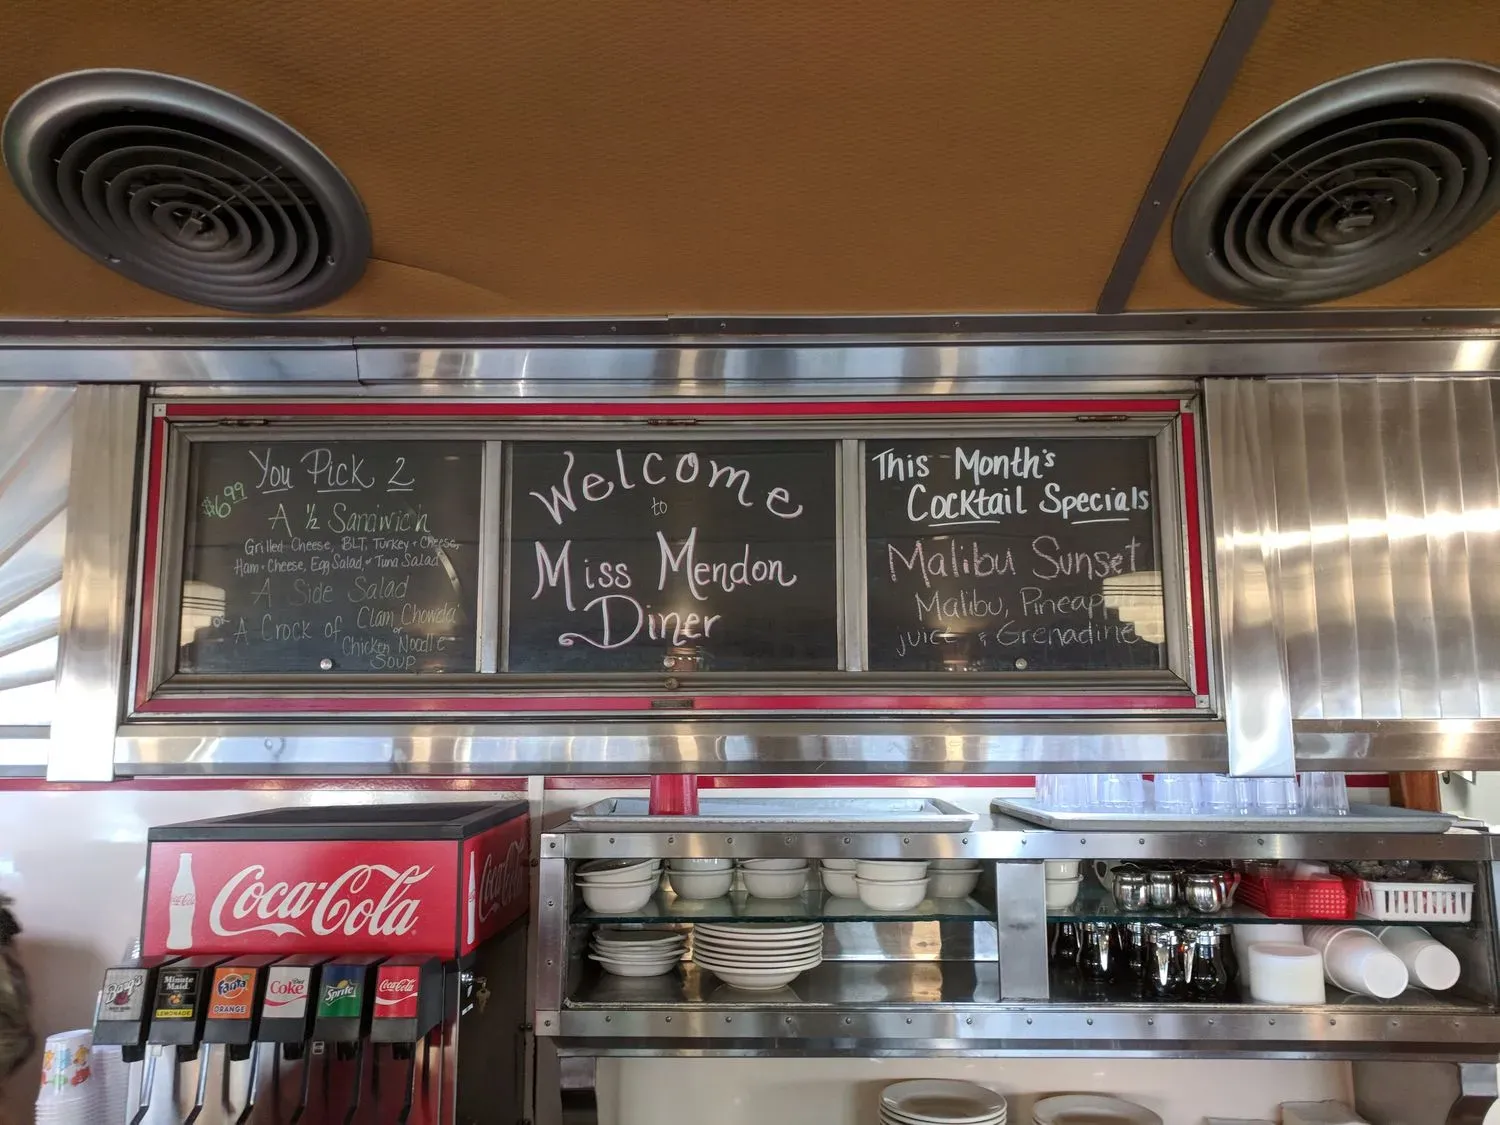 You Pick 2
$6.99
A ½ Sandwich
Grilled Cheese, BLT, Turkey + Cheese,
Ham + Cheese, Egg Salad, or Tuna Salad
A Side Salad
or
A Crock of Clam Chowda'
or
Chicken Noodle
Soup
Welcome
to
Miss Mendon
Diner
This Month's
Cocktail Specials
Malibu Sunset
Malibu, Pineapple
juice & Grenadine
Coca-Cola
Coca-Cola
Barq's
Minute
Maid
LEMONADE
Fanta
ORANGE
Diet
Coke
Sprite
Coca-Cola